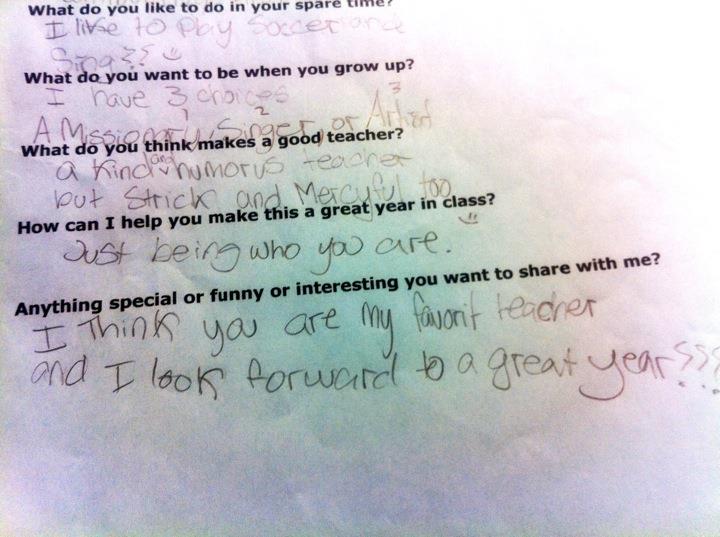 What do you like to do in your spare time?
I like to Play Soccer and
Sing!! :)
What do you want to be when you grow up?
I have 3 choices
1 2 3
A Missionary, Singer, or Artist
What do you think makes a good teacher?
a Kind and humorus teacher
but Strick and Mercyful too
How can I help you make this a great year in class?
Just being who you are. :)
Anything special or funny or interesting you want to share with me?
I Think you are My favorit teacher
and I look forward to a great year!!!